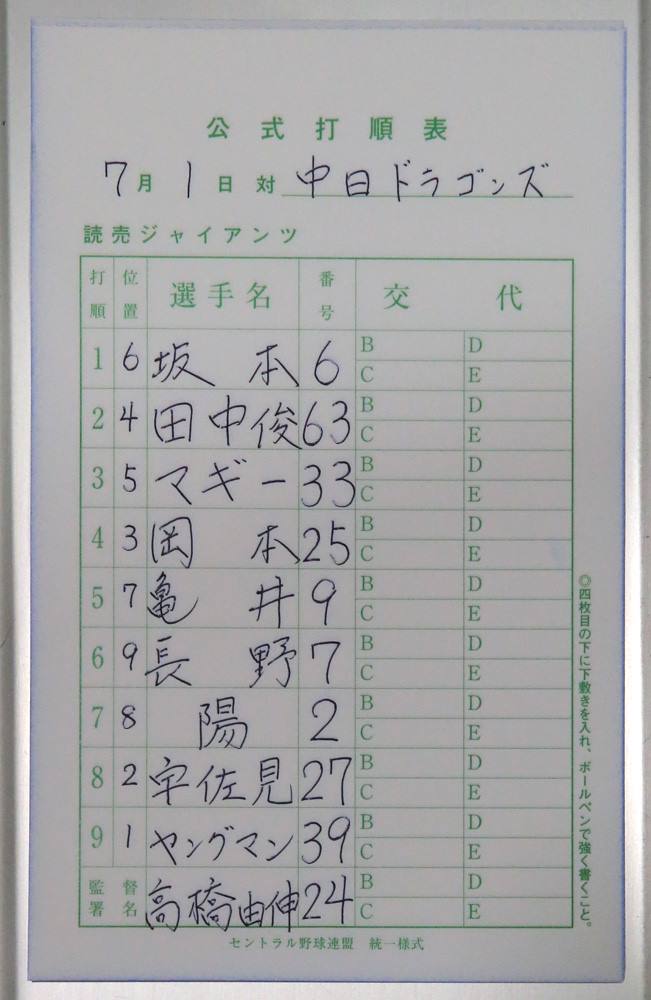 公式打順表
7月1日対 中日ドラゴンズ
読売ジャイアンツ
打順 位置 選手名 番号 交代
1 6 坂本 6 B D C E
2 4 田中俊 63 B D C E
3 5 マギー 33 B D C E
4 3 岡本 25 B D C E
5 7 亀井 9 B D C E
6 9 長野 7 B D C E
7 8 陽 2 B D C E
8 2 宇佐見 27 B D C E
9 1 ヤングマン 39 B D C E
監督署名 高橋由伸 24 B D C E
セントラル野球連盟 統一様式
◎四枚目の下に下敷きを入れ、ボールペンで強く書くこと。